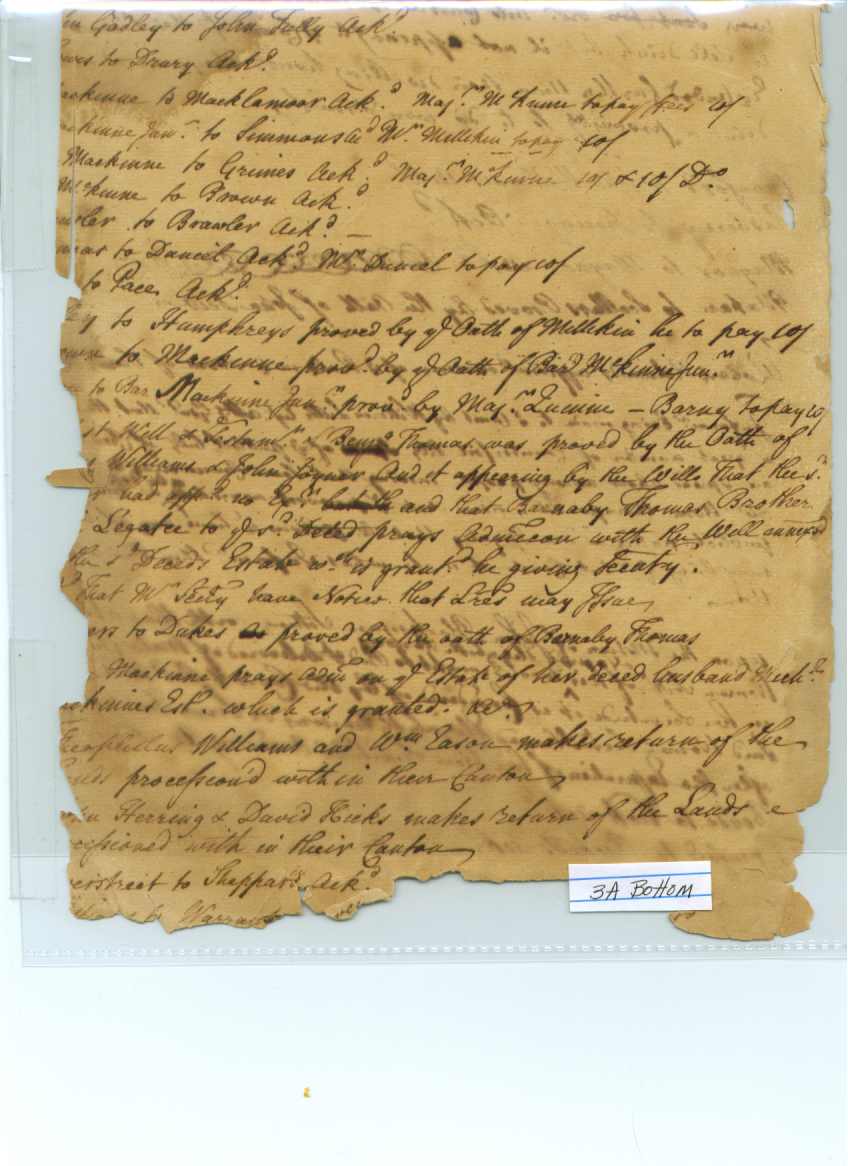 Godley to John Tully Ack.d
to Drury Ack.d
to Macklamoor Ack.d Maj.r McKinne to pay fees 10/
Jun.r to Simmons Mr. Millikin to pay 10/
Mackinne to Grimes Ack.d Maj.r McKinne 10/ & 10/ Do.
McKinne to Brown Ack.d
to Brawler Ack.d
to Daniel Ack.d Mr. Daniel to pay 10/
to Pace Ack.d
to Humphreys proved by ye Oath of Millikin he to pay 10/
to Mackinne prov.d by ye Oath of Bar.d McKinne Jun.r
to Bar Mackinne Jun.r prov.d by Maj.r — Barny to pay 10/
Will & Testam.t Benj.a Thomas was proved by the Oath of
Williams & John Joyner And it appearing by the Will That the s.d
had app.d no Ex.r and that Barnaby Thomas Brother
Legatee to ye s.d Deced prays Admcon with the Will annexed
the s.d Deceds Estate w.ch is grant.d he giving Security.
That Mr. Secty have Notice that Lres may Issue
to Dukes proved by the oath of Barnaby Thomas
Mackinne prays Adm on ye Estate of her deced husband Mich.l
Est. which is granted. &c.
Theophillus Williams and Wm Eason makes return of the
procession'd with in their Canton
Herring & David Hicks makes return of the Lands
with in their Canton
to Sheppard Ack.d
to
3A BOTTOM